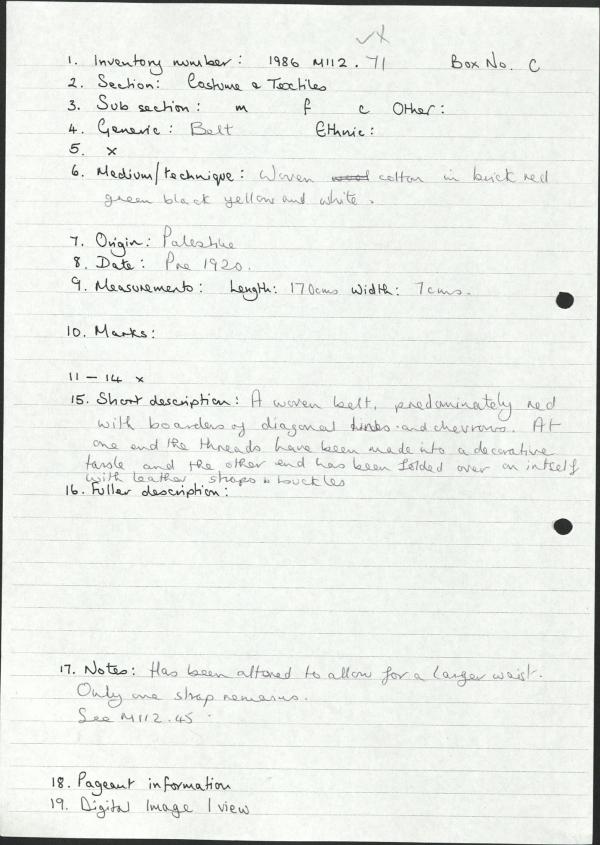 √x
1. Inventory number: 1986 M112.71 Box No. C
2. Section: Costume & Textiles
3. Sub section: m f c Other:
4. Generic: Belt Ethnic:
5. x
6. Medium/technique: Woven wool cotton in brick red
green black yellow and white.
7. Origin: Palestine
8. Date: Pre 1920.
9. Measurements: Length: 170cms Width: 7cms.
10. Marks:
11 - 14 x
15. Short description: A woven belt, predominately red
with boarders of diagonal lines and chevrons. At
one end the threads have been made into a decorative
tassle and the other end has been folded over on intself
with leather straps & buckles
16. Fuller description:
17. Notes: Has been altered to allow for a larger waist.
Only one strap remains.
See M112.45
18. Pageant information
19. Digital Image 1 view